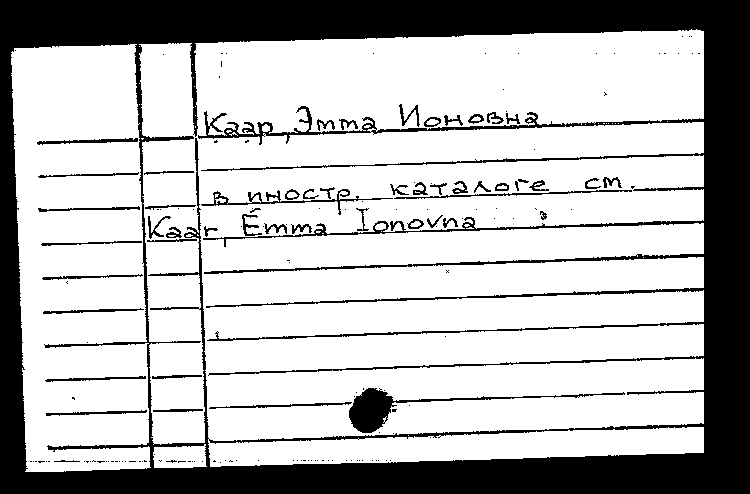 Каар, Эмма Ионовна
в иностр. каталоге см.
Kaar, Ėmma Ionovna